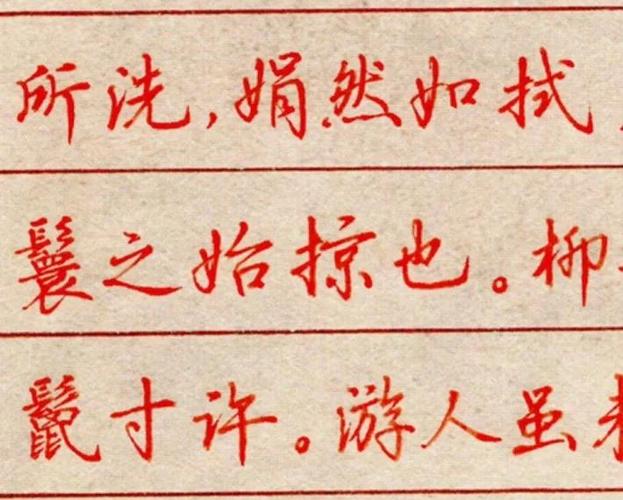 所洗，娟然如拭，
鬟之始掠也。柳
鬣寸许。游人虽未